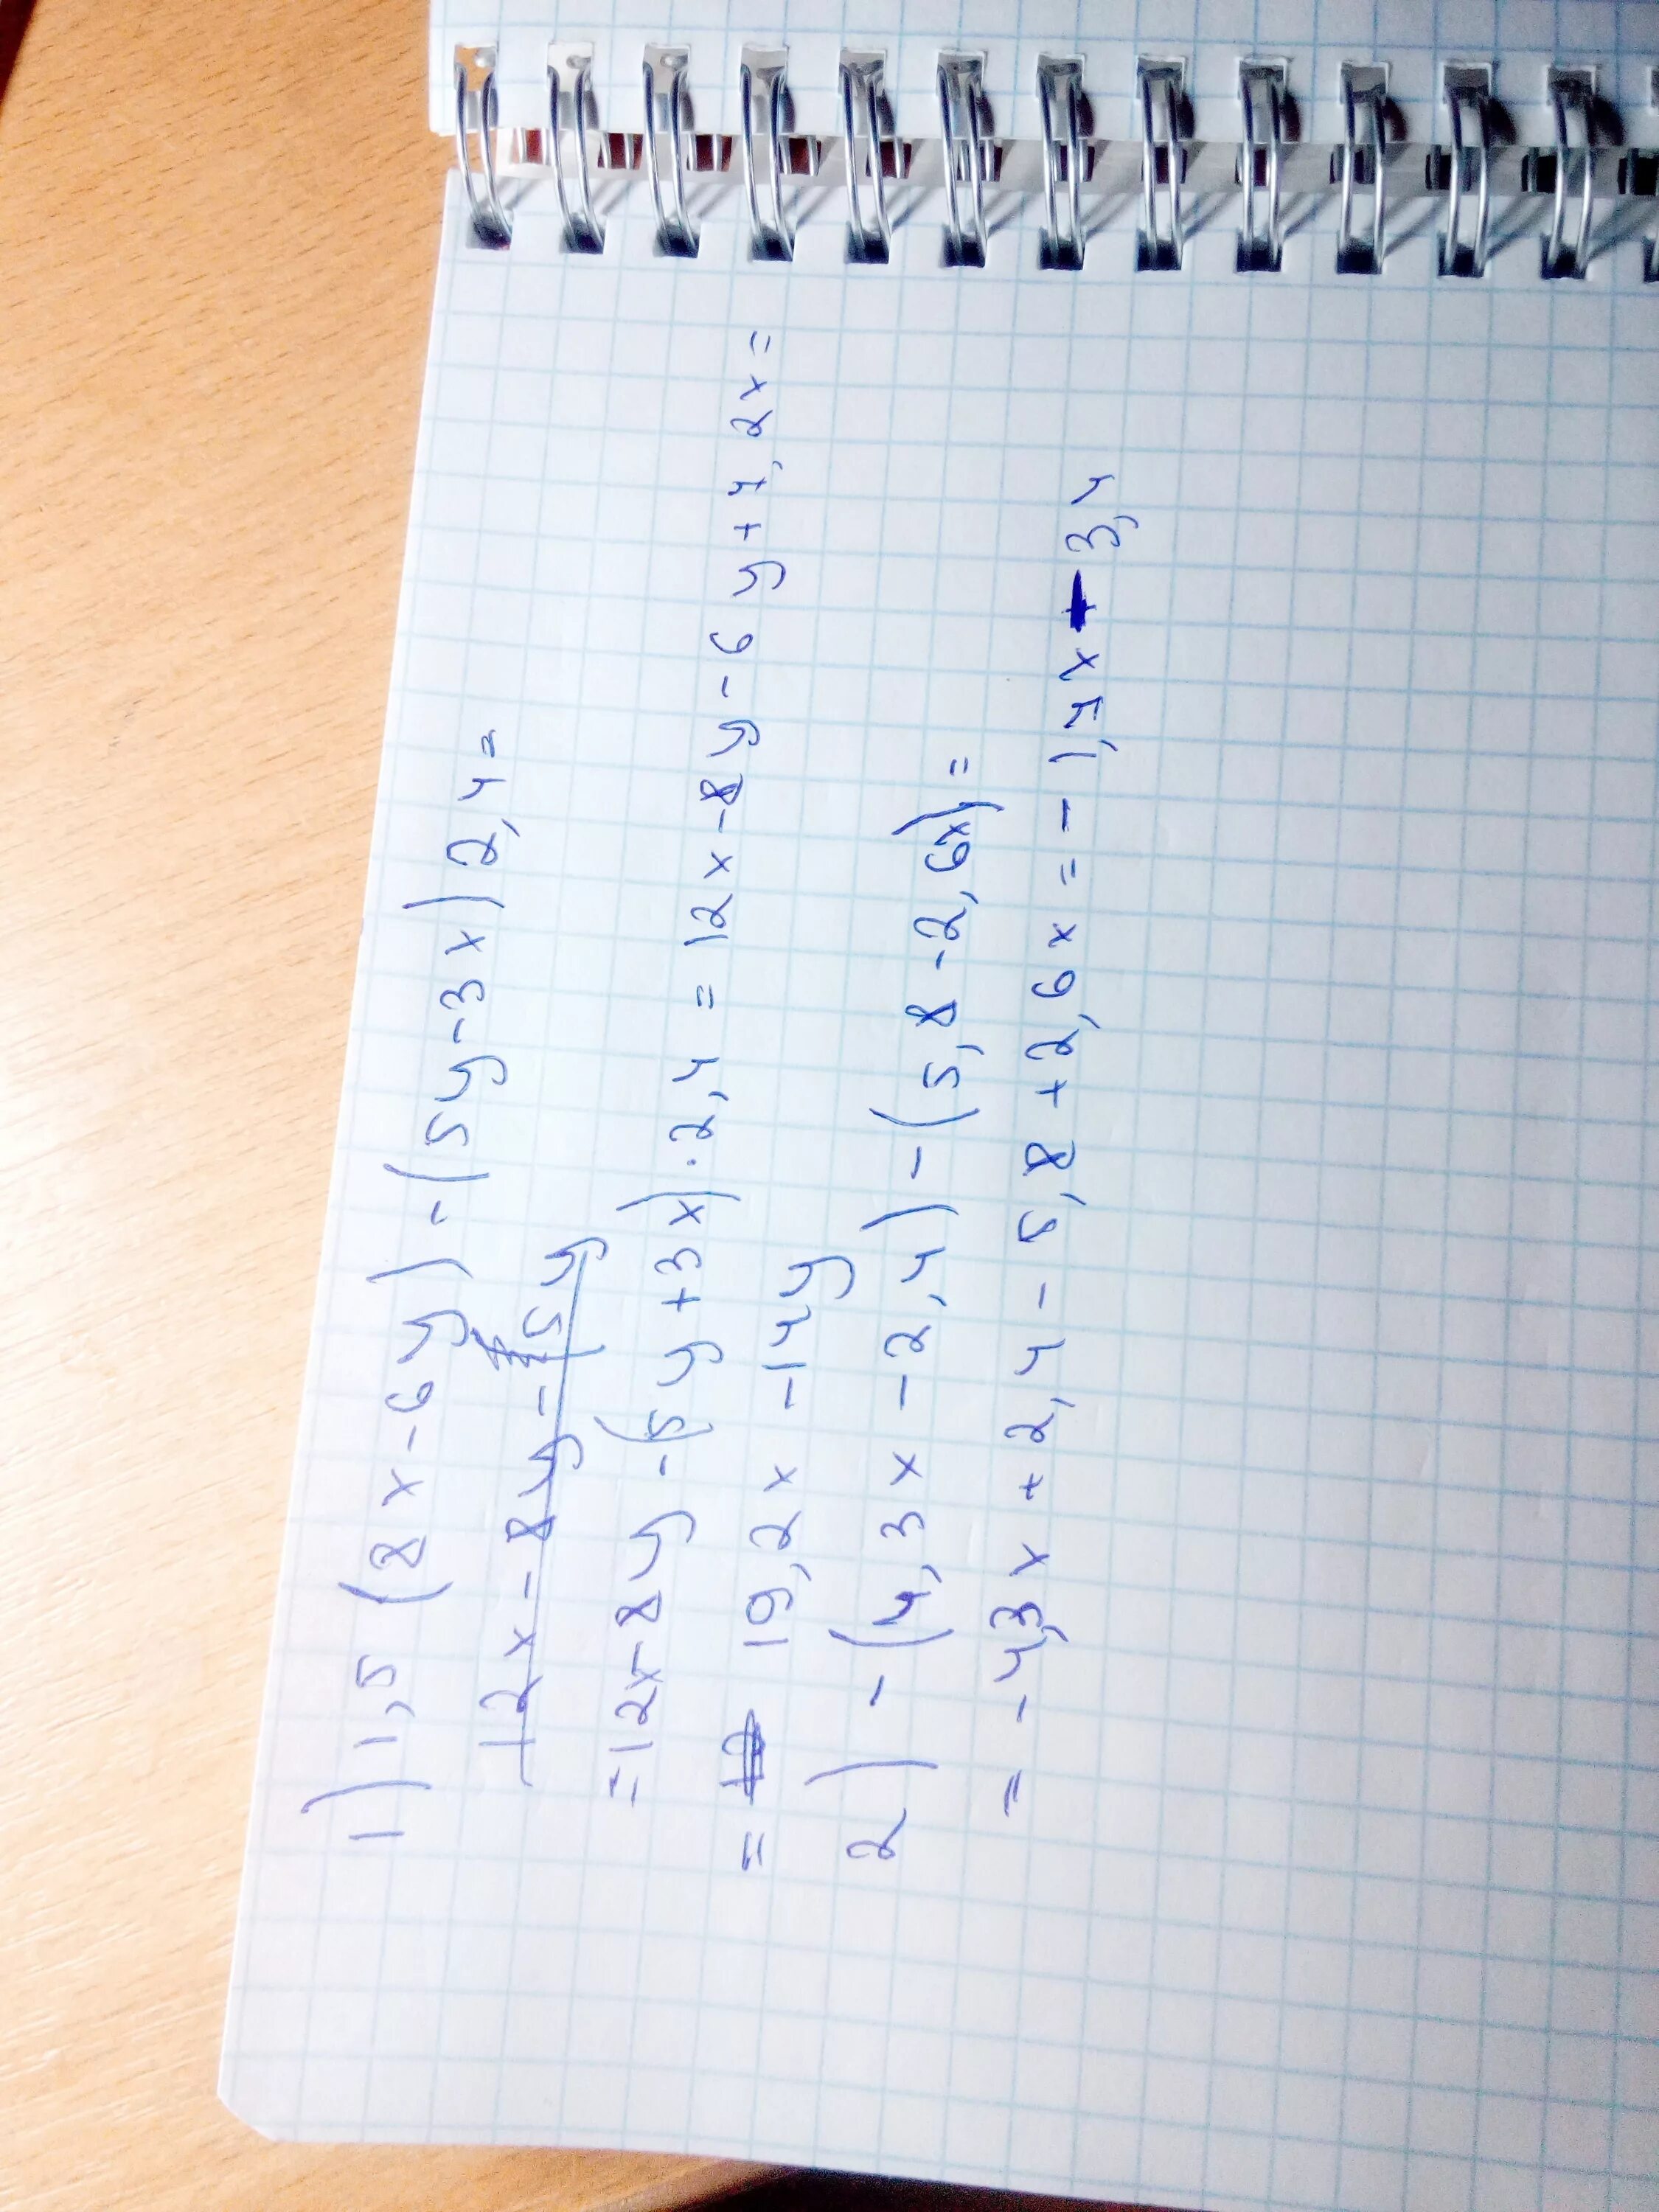 1) 1,5 (8x-6y)-(5y-3x)2,4=
12x-8y-(5y
=12x-8y-(5y+3x)·2,4=12x-8y-6y+7,2x=
= 19,2x-14y
2) -(4,3x-2,4)-(5,8-2,6x)=
= -4,3x+2,4-5,8+2,6x=-1,7x-3,4